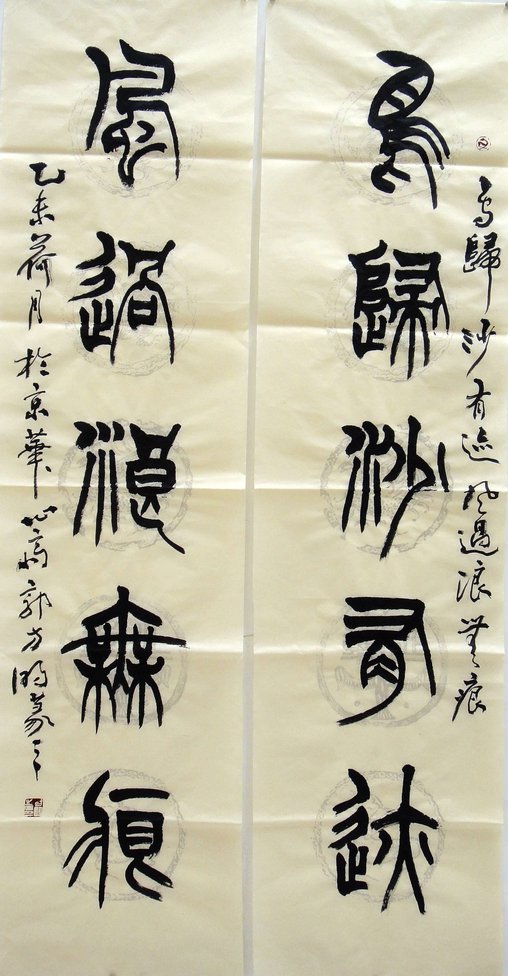 鳥歸沙有迹風過浪無痕
鳥歸沙有迹
風過浪無痕
乙未荷月於京華心齋郭方明篆之